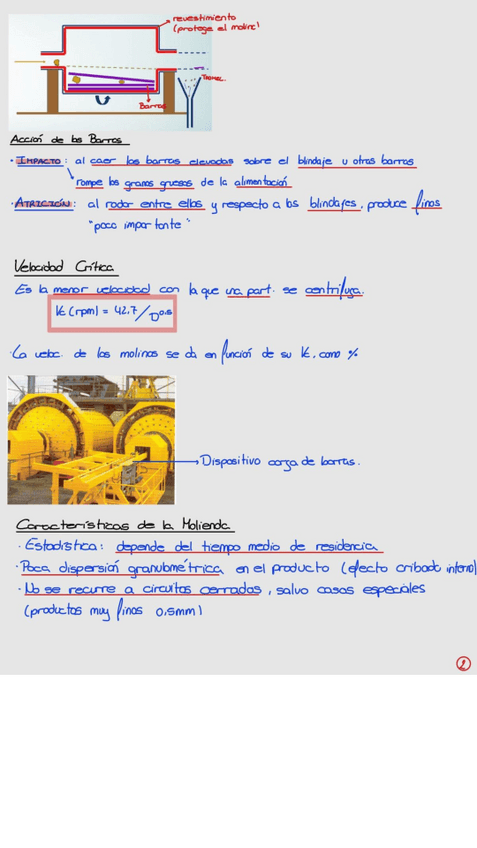 revestimiento
(protege el molino)
Tromel.
Barras
Acción de las Barras
· IMPACTO: al caer las barras elevadas sobre el blindaje u otras barras
rompe los granos gruesos de la alimentación
· ATRICCIÓN: al rodar entre ellas y respecto a los blindajes, produce finos
"poco importante"
Velocidad Crítica
Es la menor velocidad con la que una part. se centrifuga.
Vc (rpm) = 42,7/D^0.5
· La veloc. de los molinos se da en función de su Vc, como %
Dispositivo carga de barras.
Características de la Molienda
· Estadística: depende del tiempo medio de residencia
· Poca dispersión granulométrica en el producto (efecto cribado interno)
· No se recurre a circuitos cerrados, salvo casos especiales
(productos muy finos 0,5mm)